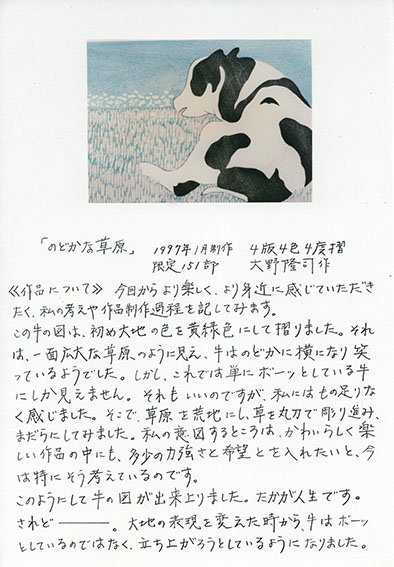 「のどかな草原」 1997年1月制作 4版4色4度摺
限定151部 大野隆司作
≪作品について≫ 今日からより楽しく、より身近に感じていただき
たく、私の考えや作品制作過程を記してみます。
この牛の図は、初め大地の色を黄緑色にして摺りました。それ
は、一面広大な草原のように見え、牛はのどかに横になり笑
っているようでした。しかし、これでは単にボーッとしている牛
にしか見えません。それもいいのですが、私にはもの足りな
く感じました。そこで、草原を荒地にし、草を丸刀で彫り進み、
まだらにしてみました。私の意図するところは、かわいらしく楽
しい作品の中にも、多少の力強さと希望とを入れたいと、今
は特にそう考えているのです。
このようにして牛の図が出来上りました。たかが人生です。
されど―――。大地の表現を変えた時から、牛はボーッ
としているのではなく、立ち上がろうとしているようになりました。